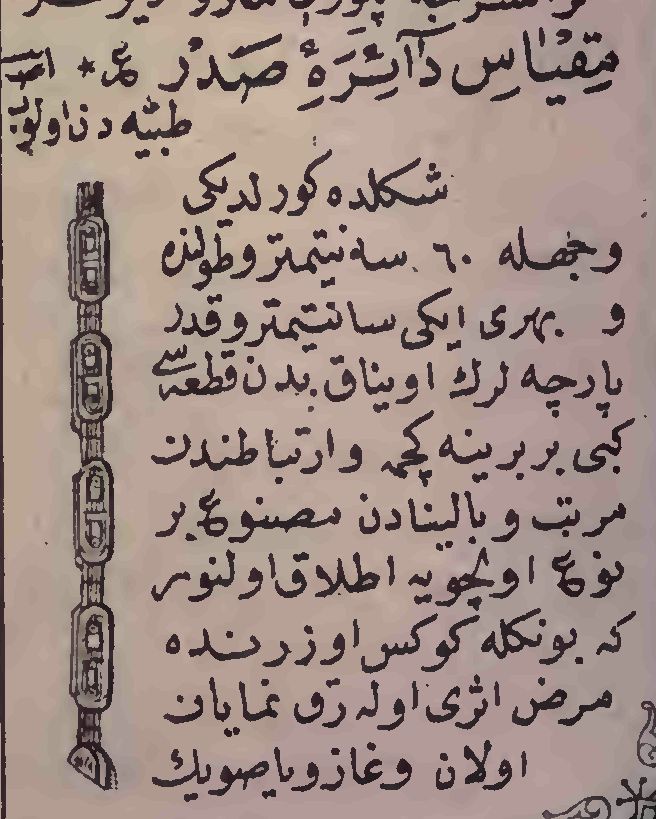 مِقْيَاسِ دَآئِرَهٔ صَدْر ع *
طبيّه دن اولوب
شكلده كورلديكى
وجهله ٦٠ سه نتيمترو طولنده
و بهرى ايكى سانتيمترو قدر
پارچه لرك اويناق بدن قطعه سى
كبى بر برينه كچمه وارتباطندن
مرتب و بالينادن مصنوع بر
نوع اولچويه اطلاق اولنور
كه بونكله كوكس اوزرنده
مرض اثرى اوله رق نمايان
اولان وغاز ويا صويك